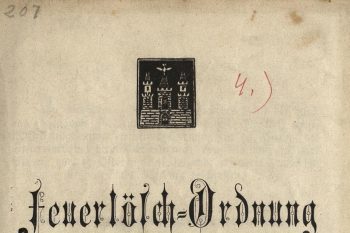 207
4.)
Feuerlösch-Ordnung